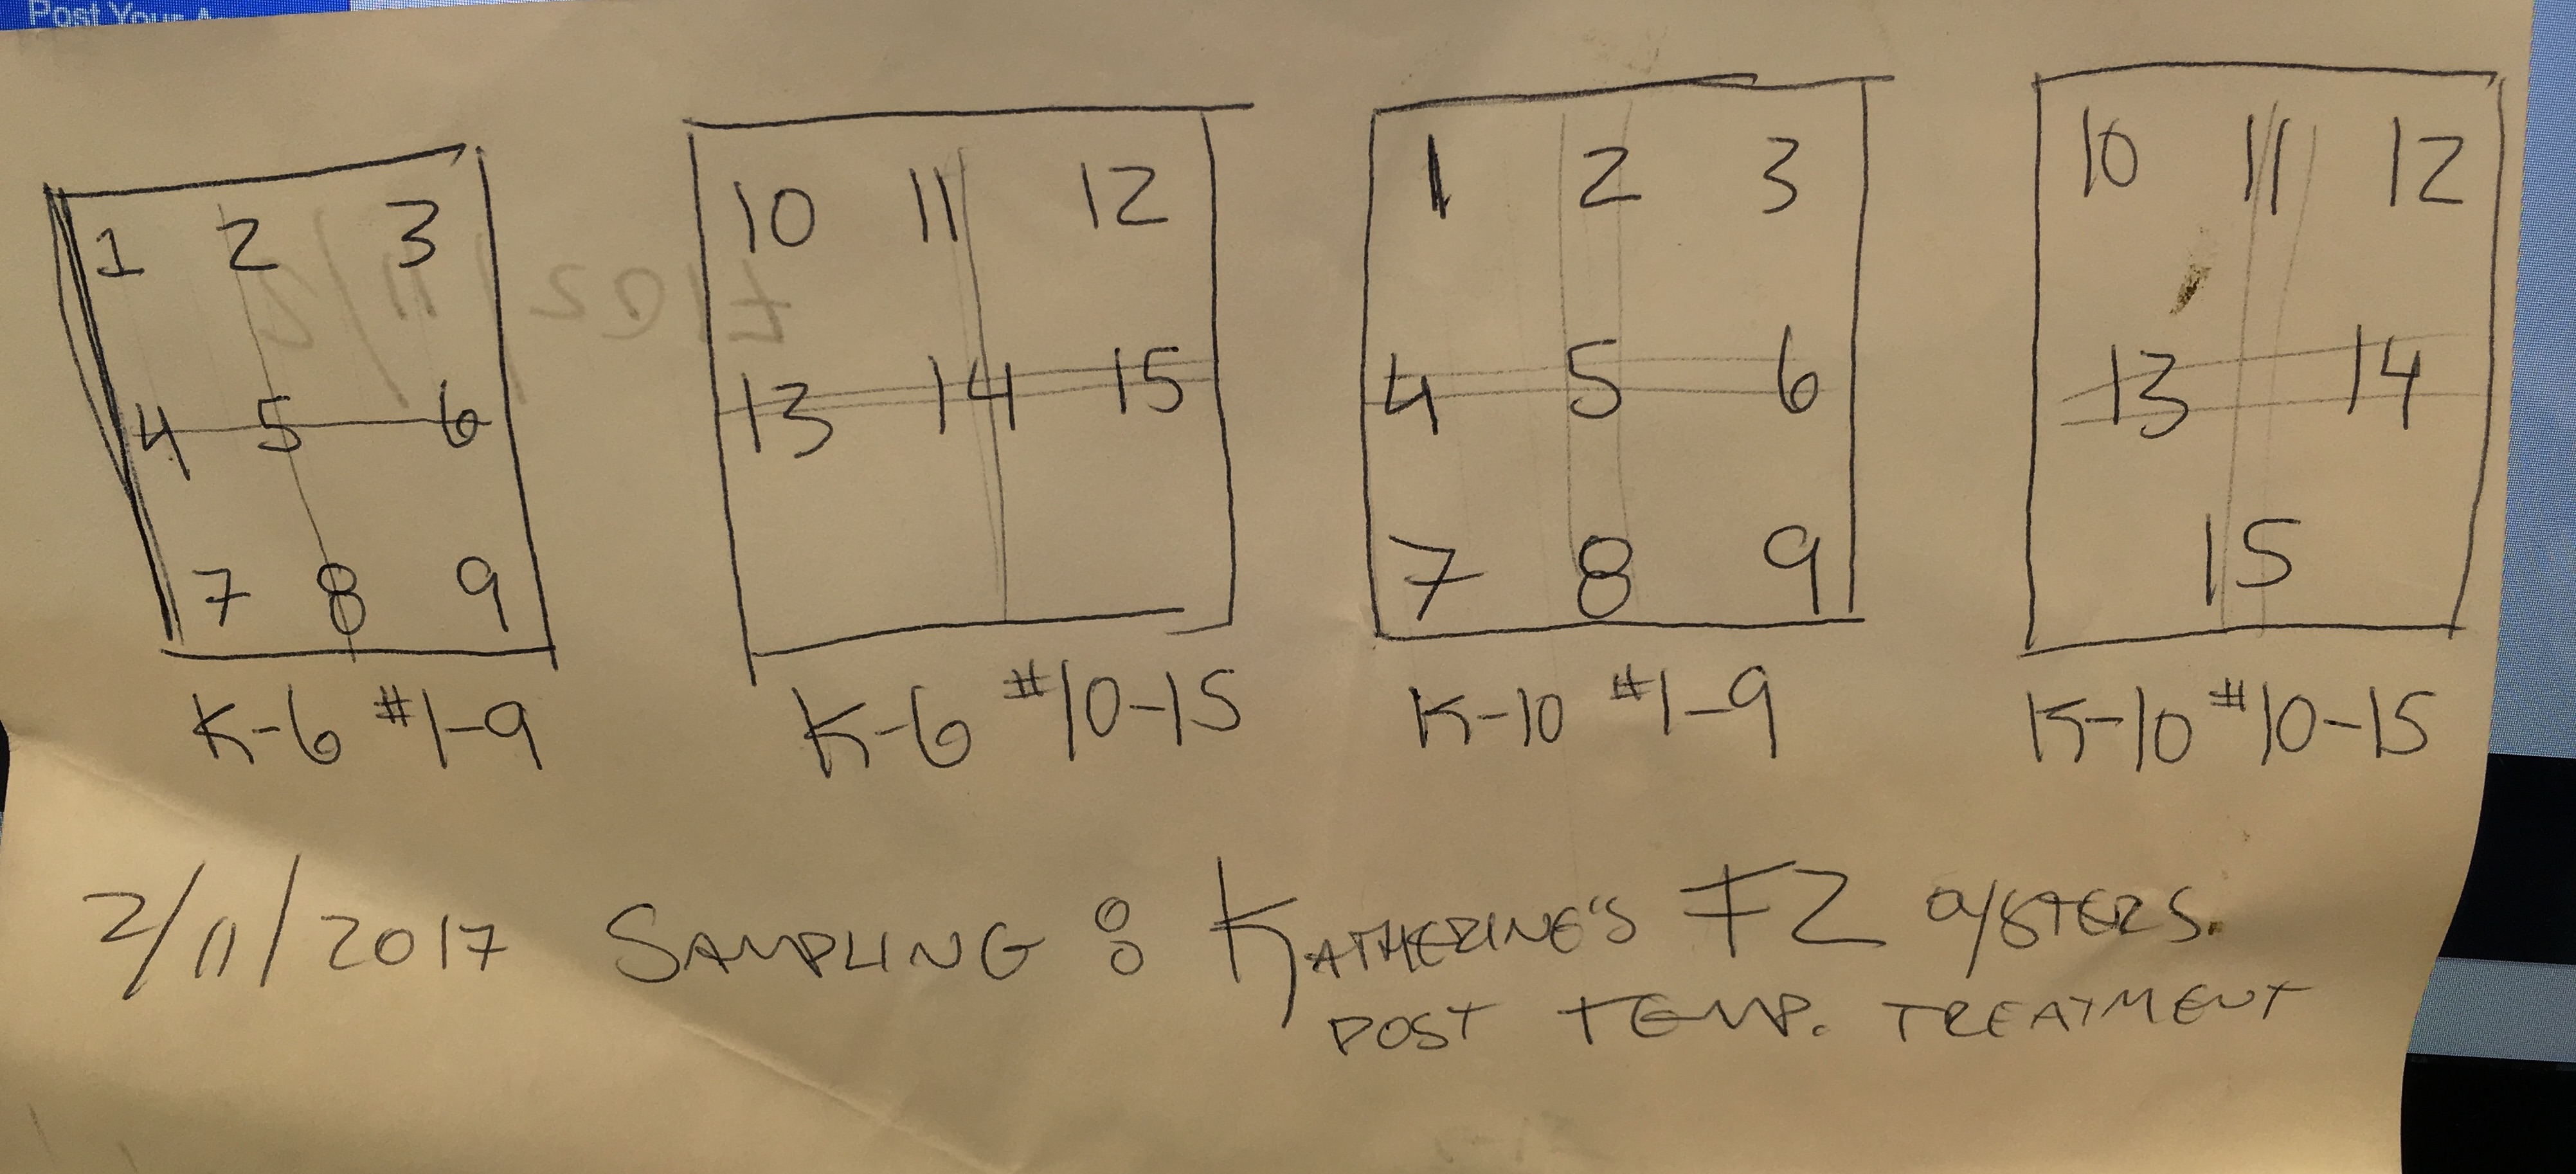 Post Your
1 2 3
4 5 6
7 8 9
K-6 #1-9
10 11 12
13 14 15
K-6 #10-15
1 2 3
4 5 6
7 8 9
K-10 #1-9
10 11 12
13 14
15
K-10 #10-15
2/11/2017 SAMPLING: KATHERINE'S F2 OYSTERS.
POST TEMP. TREATMENT